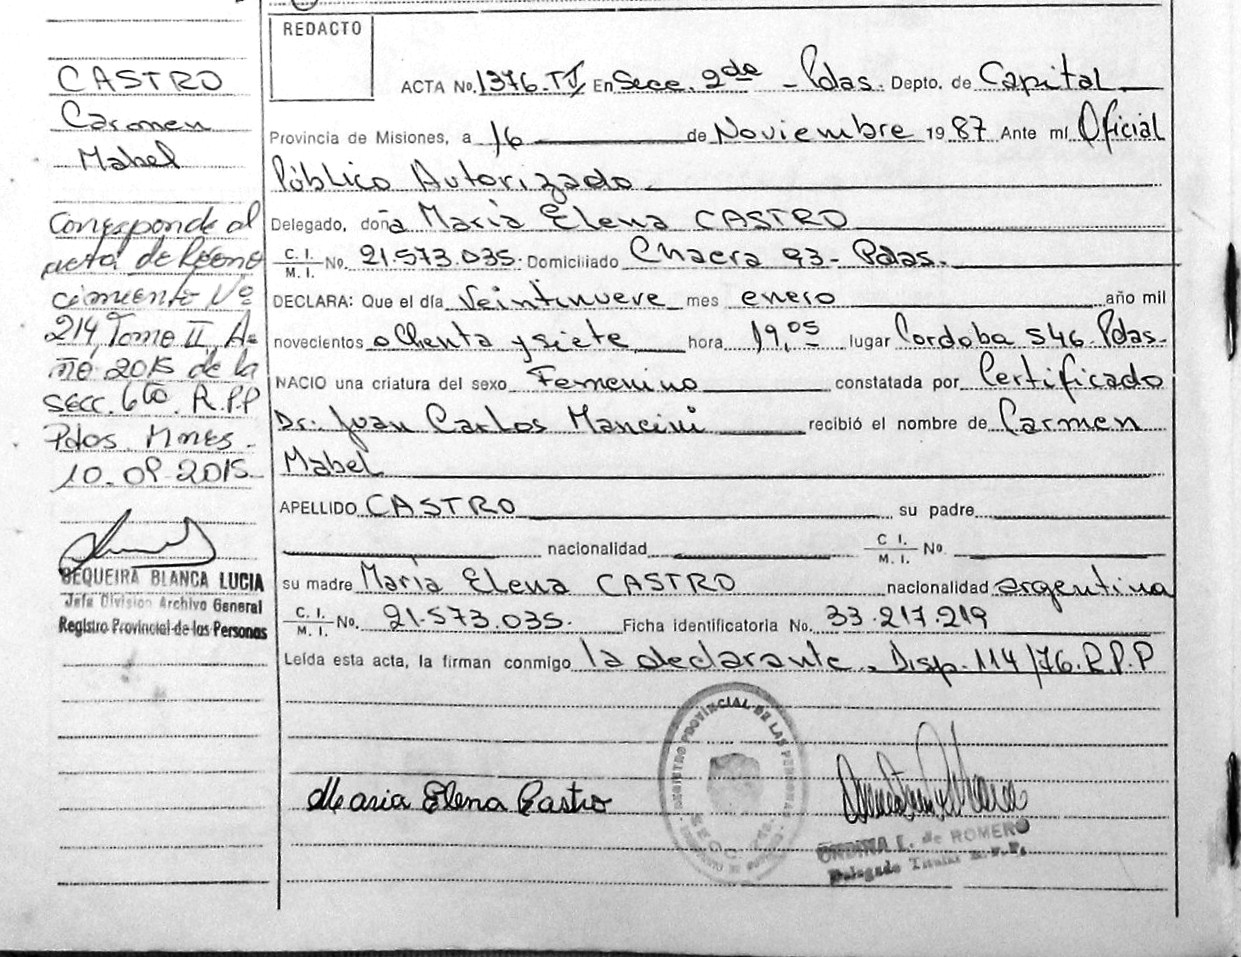 REDACTO
CASTRO
Carmen
Mabel
Corresponde al
acta de Recono
cimiento Nº
214, Tomo II, A-
ño 2015 de la
secc. 6ta. R.P.P
Pdas. Mnes.
10.09.2015
SEQUEIRA BLANCA LUCIA
Jefa Division Archivo General
Registro Provincial de las Personas
ACTA No. 1376.TI En Secc. 2da - Pdas. Depto. de Capital
Provincia de Misiones, a 16 de Noviembre 1987 Ante mí Oficial
Público Autorizado.
Delegado, doña María Elena CASTRO
C. I. / M. I. No. 21.573.035. Domiciliado Chacra 93- Pdas.
DECLARA: Que el día Veintinueve mes enero año mil
novecientos ochenta y siete hora 19,05 lugar Cordoba 546. Pdas.
NACIO una criatura del sexo Femenino constatada por Certificado
Dr. Juan Carlos Mancini recibió el nombre de Carmen
Mabel
APELLIDO CASTRO su padre
nacionalidad C. I. / M. I. No.
su madre María Elena CASTRO nacionalidad argentina
C. I. / M. I. No. 21.573.035. Ficha identificatoria No. 33.217.219
Leída esta acta, la firman conmigo la declarante. Disp. 114/76.R.P.P
María Elena Castro
REGISTRO PROVINCIAL DE LAS PERSONAS
L. de ROMERO
Delegado Titular R.P.P.